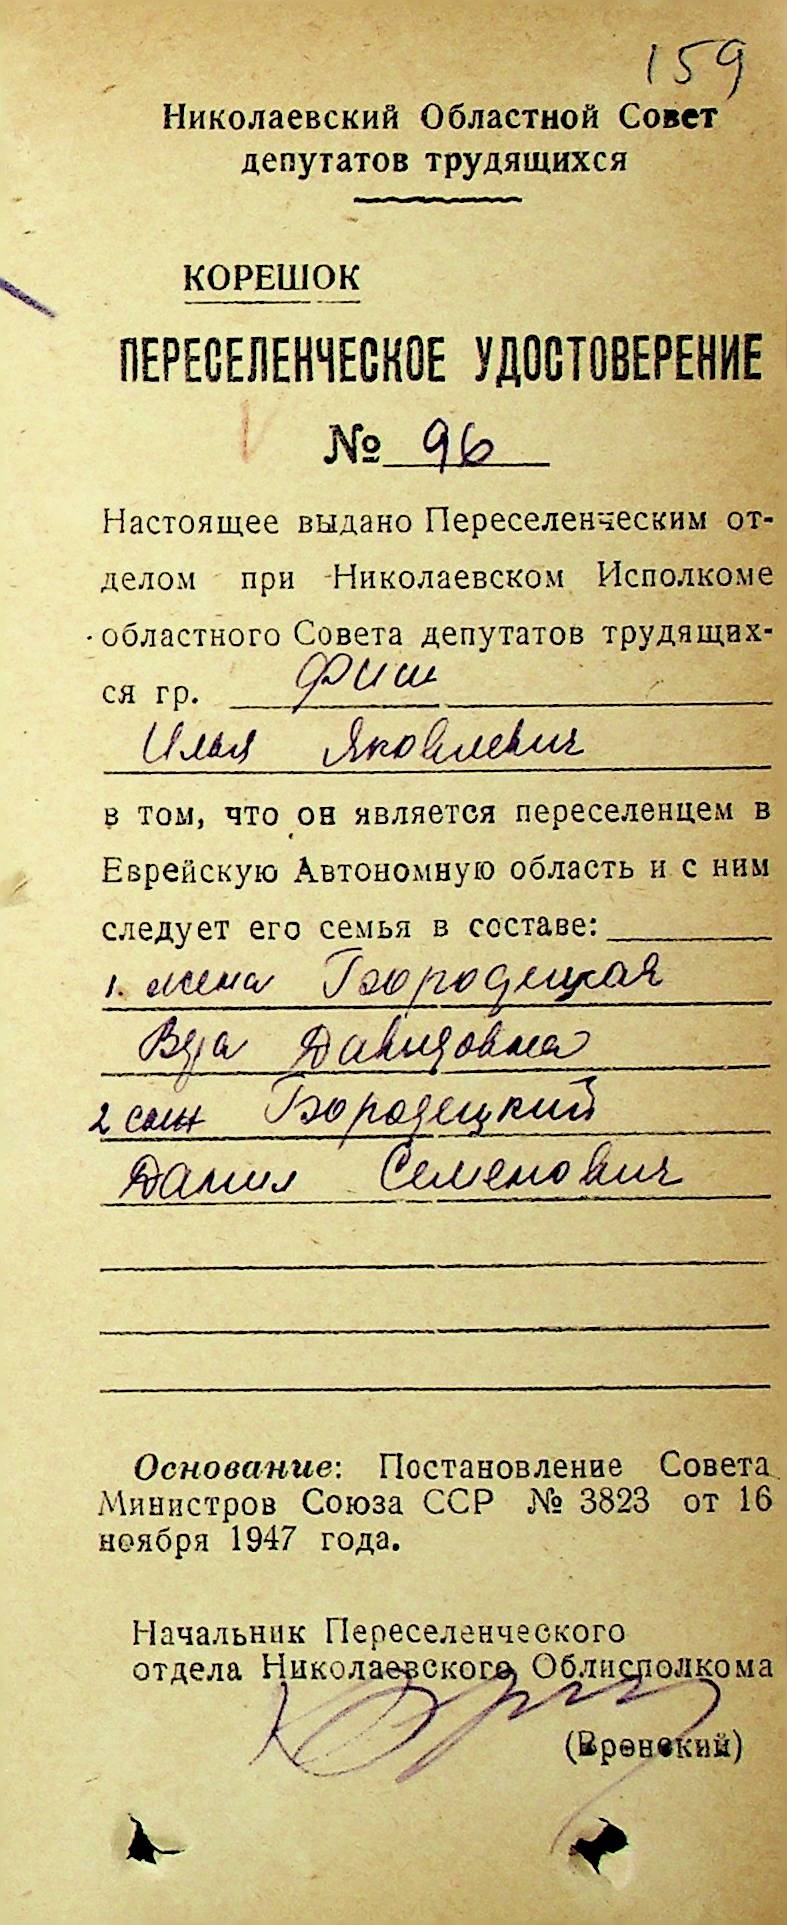 159
Николаевский Областной Совет
депутатов трудящихся
КОРЕШОК
ПЕРЕСЕЛЕНЧЕСКОЕ УДОСТОВЕРЕНИЕ
№ 96
Настоящее выдано Переселенческим от-
делом при Николаевском Исполкоме
областного Совета депутатов трудящих-
ся гр. Фиш
Илья Яковлевич
в том, что он является переселенцем в
Еврейскую Автономную область и с ним
следует его семья в составе:
1. жена Бородецкая
Давидовна
2 сын Бородецкий
Данил Семенович
Основание: Постановление Совета
Министров Союза ССР № 3823 от 16
ноября 1947 года.
Начальник Переселенческого
отдела Николаевского Облисполкома
(Вронский)